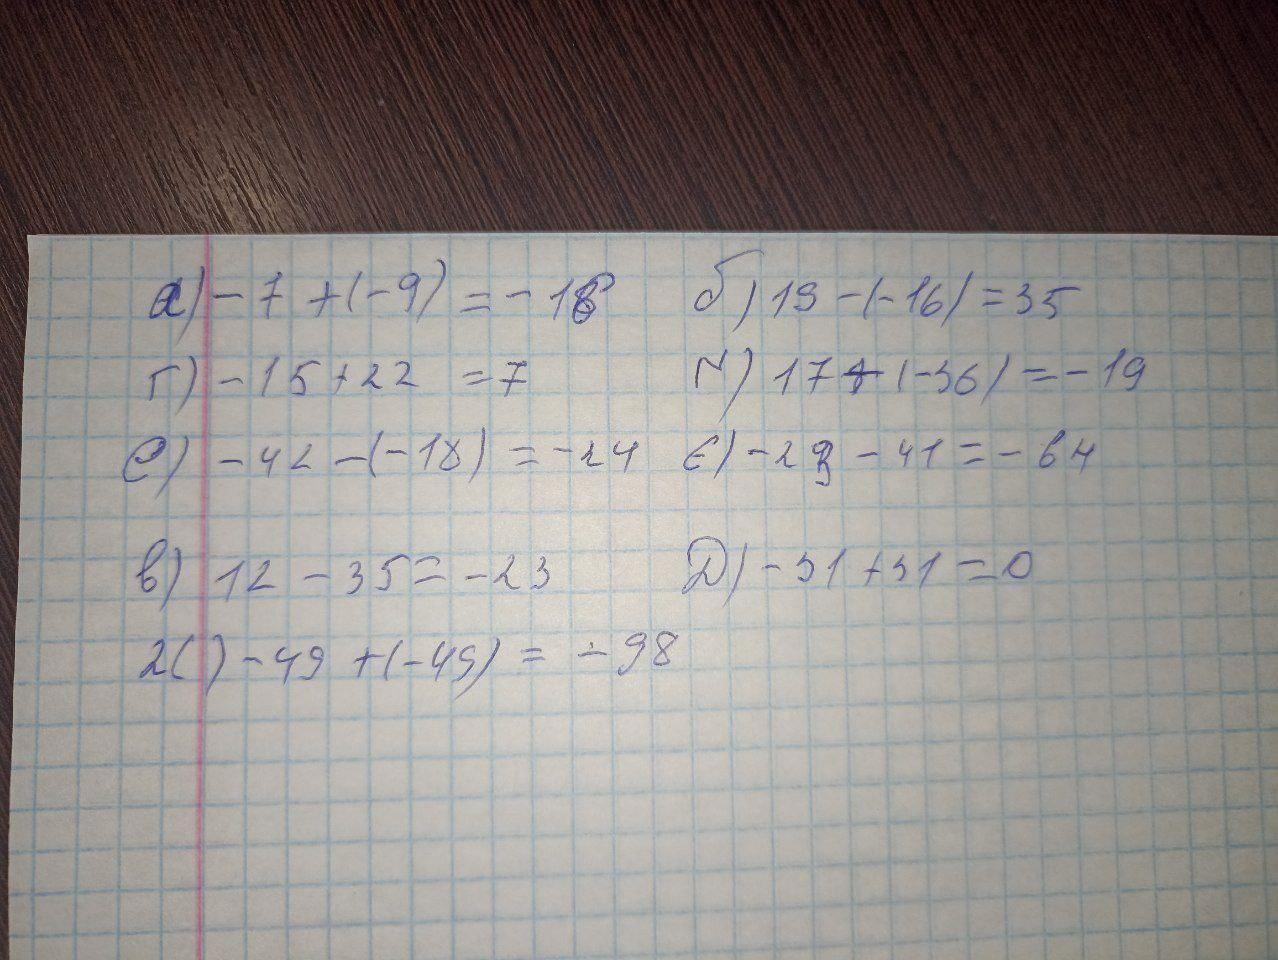 а) -7 + (-9) = -16 б) 19 - (-16) = 35
г) -15 + 22 = 7 ґ) 17 + (-36) = -19
е) -42 - (-18) = -24 є) -23 - 41 = -64
в) 12 - 35 = -23 д) -31 + 31 = 0
ж) -49 + (-49) = -98